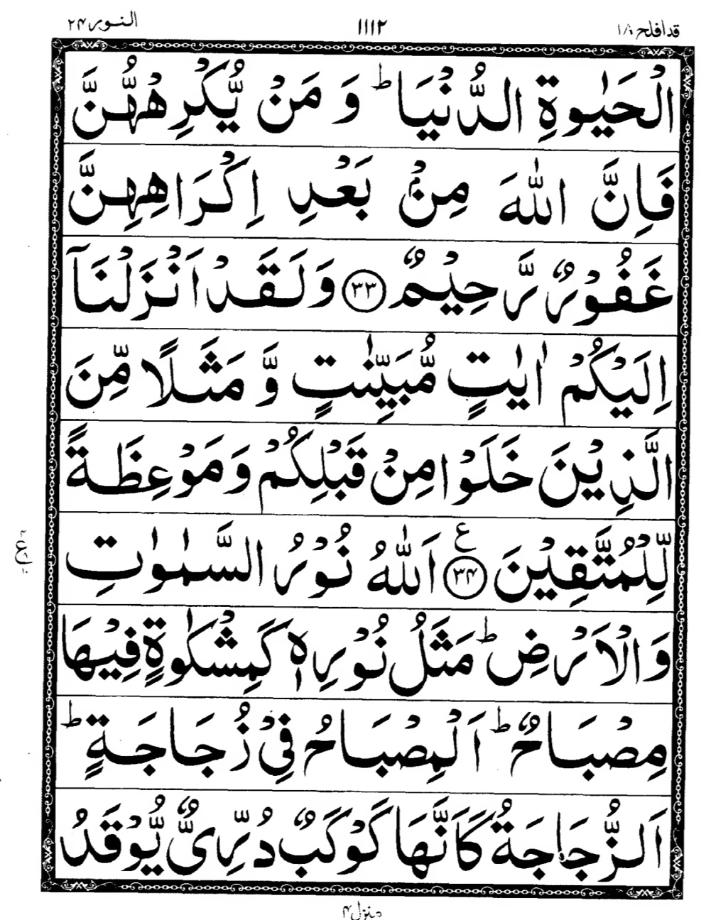 النور ۲۴
۱۱۱۲
قد افلح ۱۸
الْحَيٰوةِ الدُّنْيَا ؕ وَ مَنْ يُّكْرِهْهُّنَّ
فَاِنَّ اللّٰهَ مِنْۢ بَعْدِ اِكْرَاهِهِنَّ
غَفُوْرٌ رَّحِيْمٌ ﴿۳۳﴾ وَ لَقَدْ اَنْزَلْنَاۤ
اِلَيْكُمْ اٰيٰتٍ مُّبَيِّنٰتٍ وَّ مَثَلًا مِّنَ
الَّذِيْنَ خَلَوْا مِنْ قَبْلِكُمْ وَ مَوْعِظَةً
لِّلْمُتَّقِيْنَ ﴿۳۴﴾ ع اَللّٰهُ نُوْرُ السَّمٰوٰتِ
وَ الْاَرْضِ ؕ مَثَلُ نُوْرِهٖ كَمِشْكٰوةٍ فِيْهَا
مِصْبَاحٌ ؕ اَلْمِصْبَاحُ فِيْ زُجَاجَةٍ ؕ
اَلزُّجَاجَةُ كَاَنَّهَا كَوْكَبٌ دُرِّيٌّ يُّوْقَدُ
منزل ۴